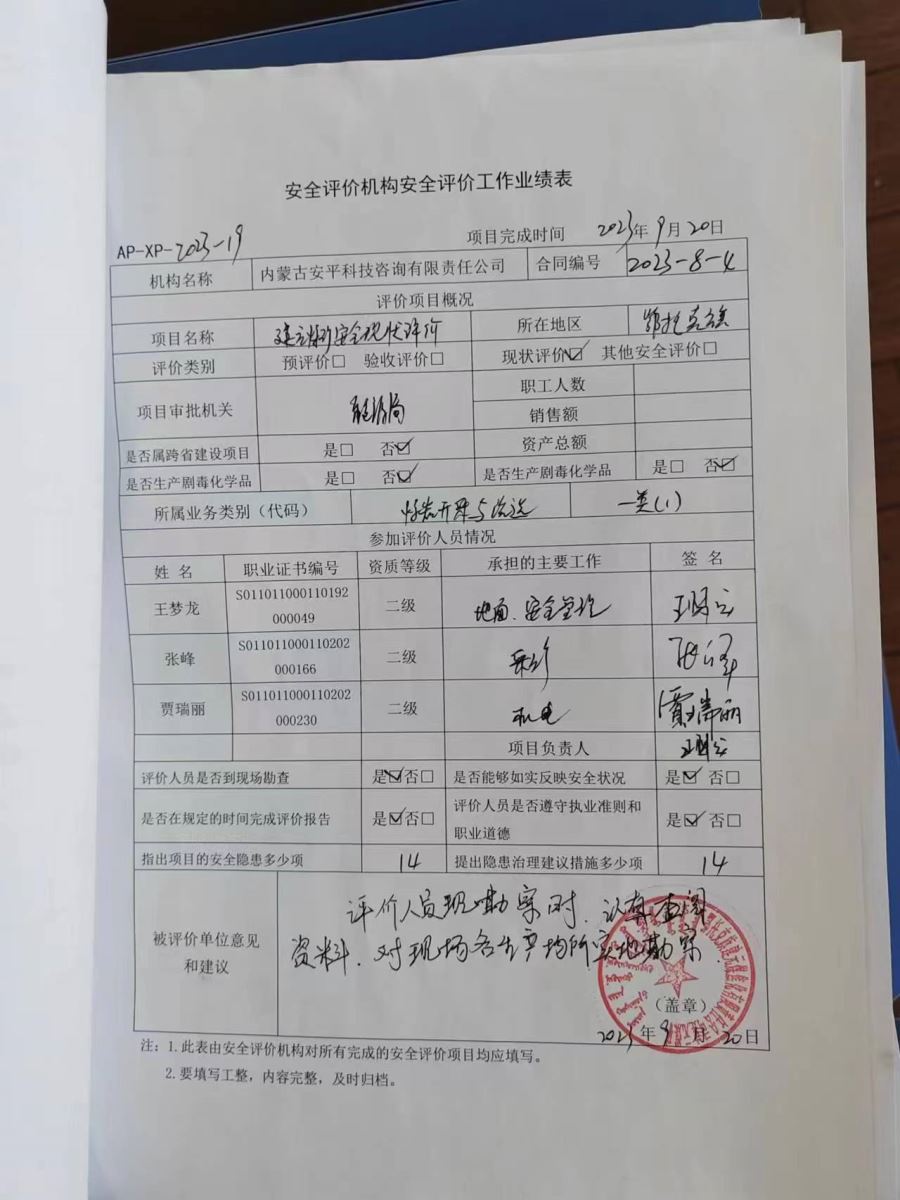 安全评价机构安全评价工作业绩表
AP-XP-2023-19 项目完成时间 2023年9月20日
机构名称 内蒙古安平科技咨询有限责任公司 合同编号 2023-8-4
评价项目概况
项目名称 建元煤矿安全现状评价 所在地区 鄂托克旗
评价类别 预评价□ 验收评价□ 现状评价☑ 其他安全评价□
项目审批机关 能源局 职工人数
销售额
资产总额
是否属跨省建设项目 是□ 否☑
是否生产剧毒化学品 是□ 否☑ 是否生产剧毒化学品 是□ 否☑
所属业务类别（代码） 煤炭开采与洗选 一类(1)
参加评价人员情况
姓 名 职业证书编号 资质等级 承担的主要工作 签 名
王梦龙 S011011000110192000049 二级 地面、安全管理
张峰 S011011000110202000166 二级 采矿 张峰
贾瑞丽 S011011000110202000230 二级 机电 贾瑞丽
项目负责人
评价人员是否到现场勘查 是☑否□ 是否能够如实反映安全状况 是☑ 否□
是否在规定的时间完成评价报告 是☑否□ 评价人员是否遵守执业准则和
职业道德 是☑ 否□
指出项目的安全隐患多少项 14 提出隐患治理建议措施多少项 14
被评价单位意见
和建议
评价人员现场勘察时，认真查阅
资料，对现场各生产场所实地勘察
（盖章）
2023年9月20日
注：1.此表由安全评价机构对所有完成的安全评价项目均应填写。
2.要填写工整，内容完整，及时归档。